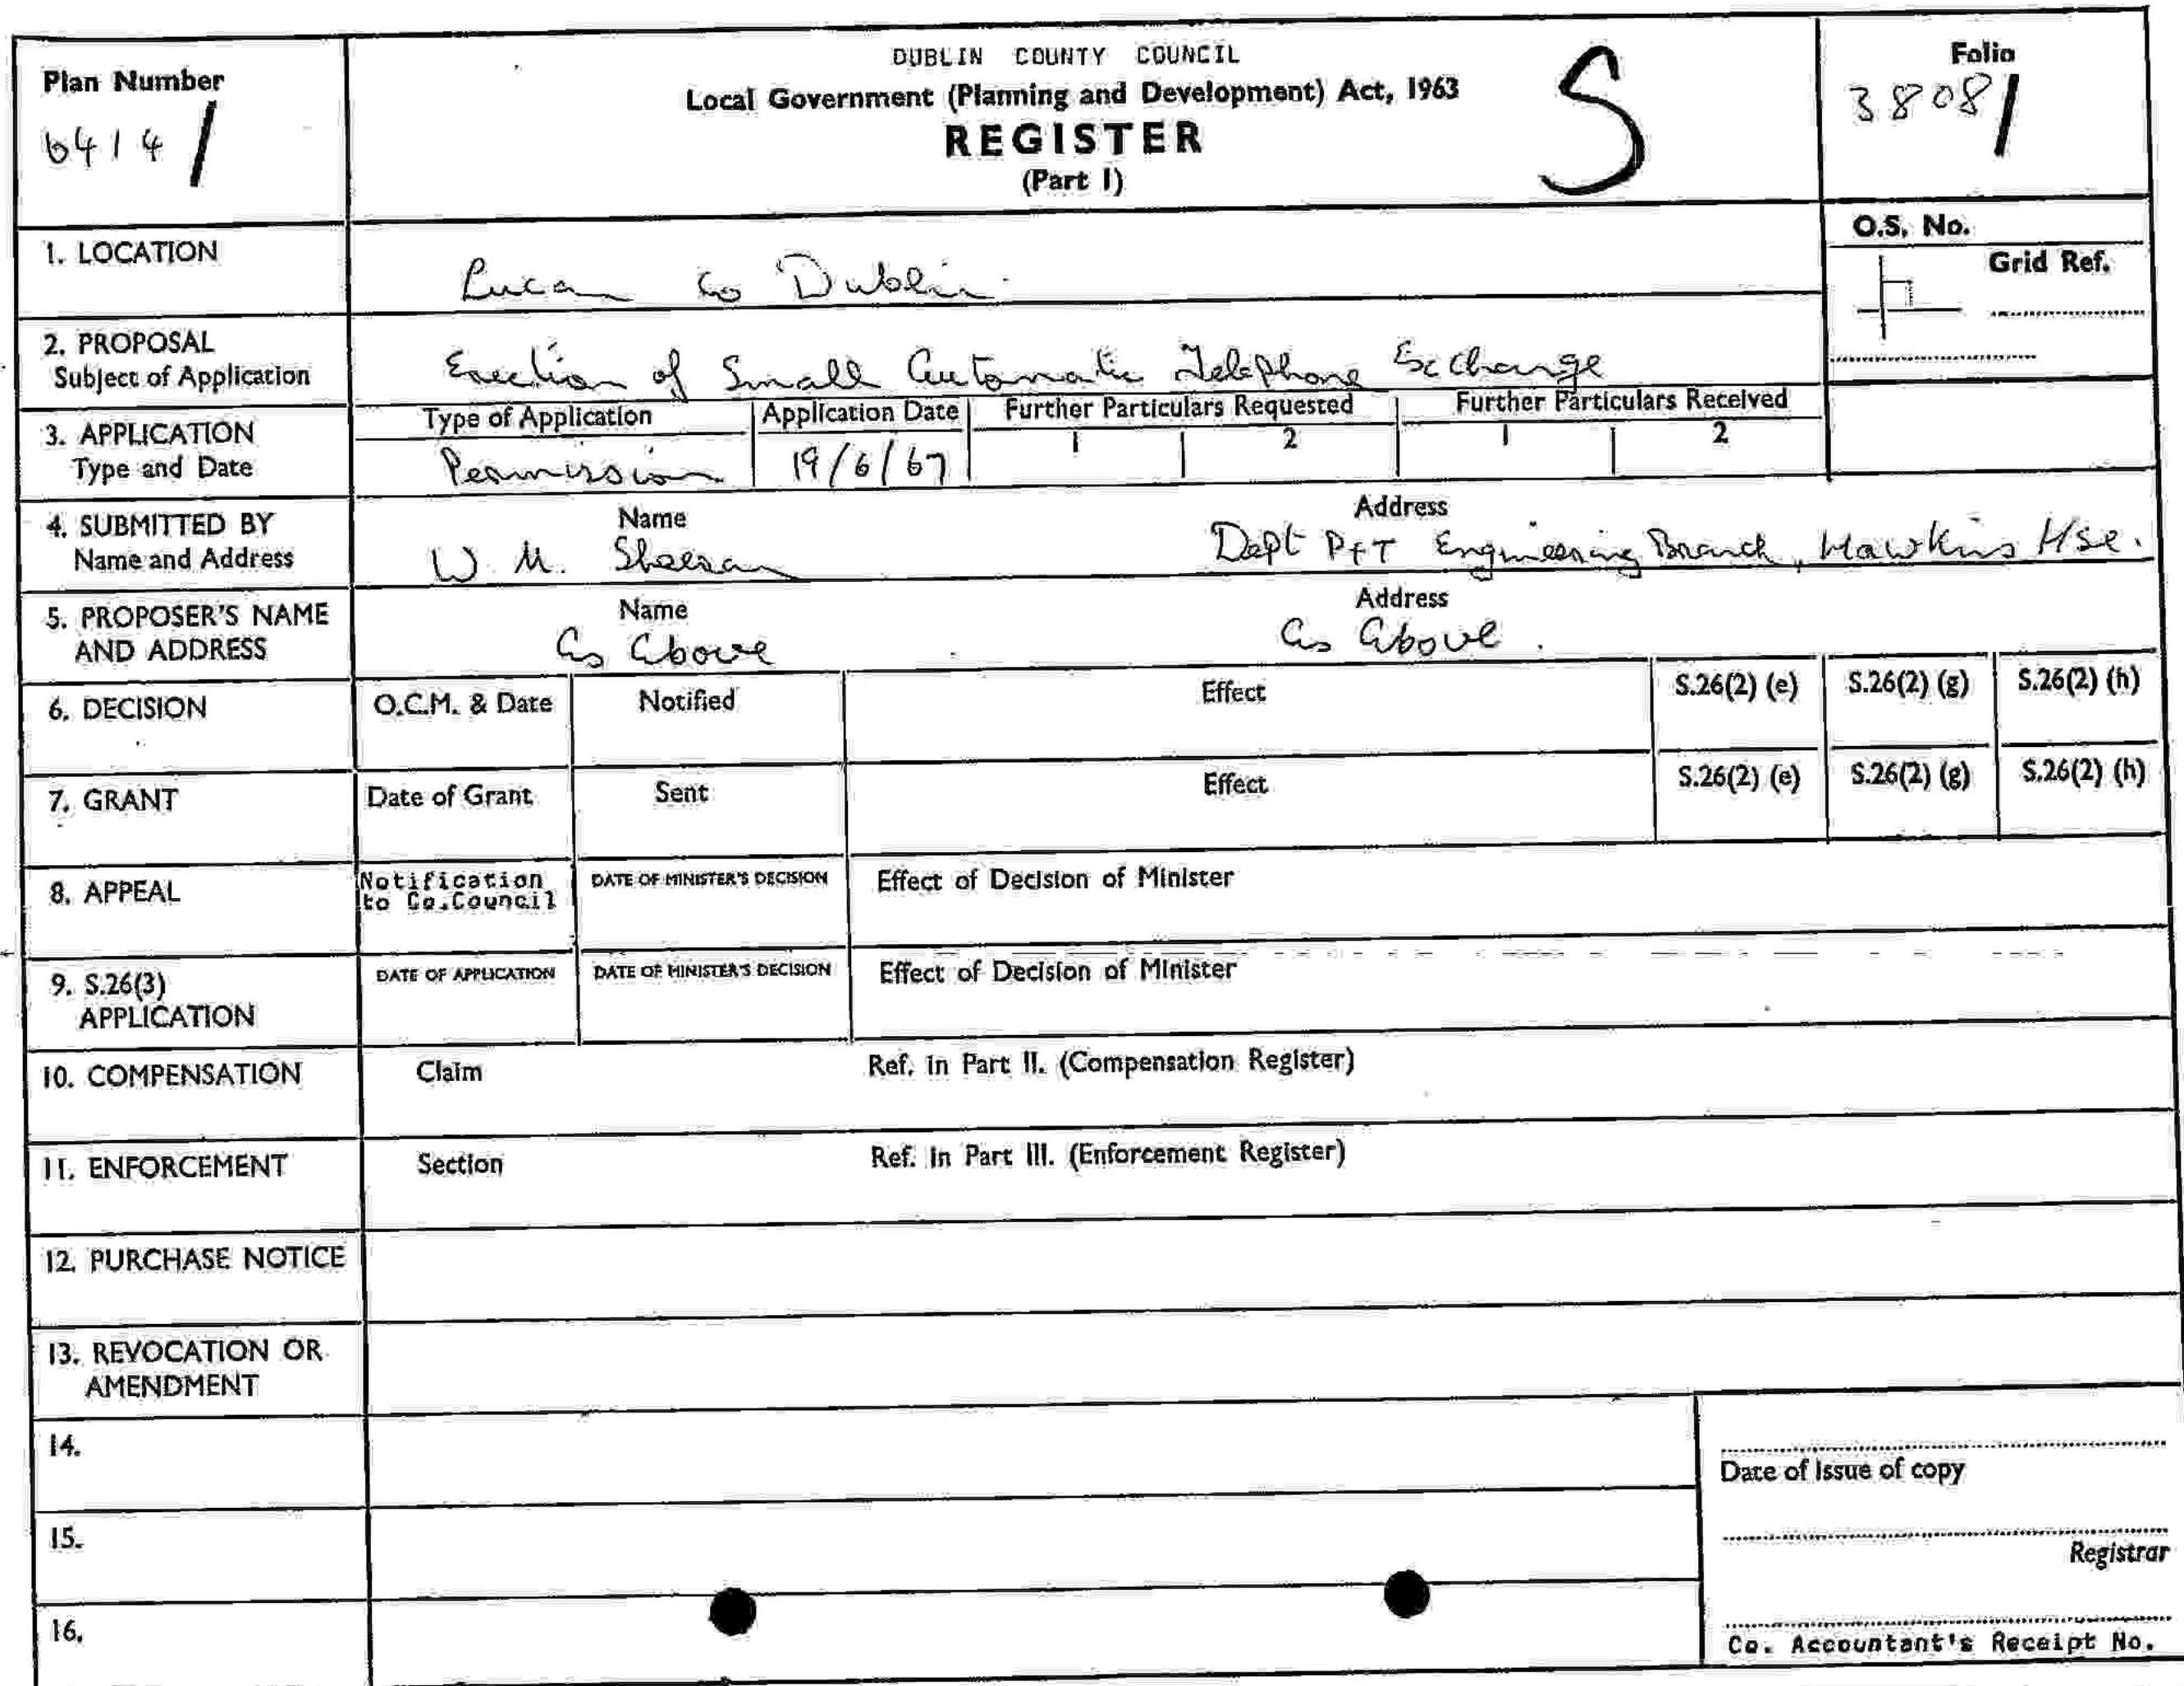 DUBLIN COUNTY COUNCIL
Local Government (Planning and Development) Act, 1963
REGISTER
(Part I)
S
Plan Number
6414
Folio
3808
1. LOCATION
Lucan Co Dublin
O.S. No.
Grid Ref.
2. PROPOSAL
Subject of Application
Erection of Small Automatic Telephone Exchange
3. APPLICATION
Type and Date
Type of Application
Application Date
Further Particulars Requested
Further Particulars Received
1 2 1 2
Permission 19/6/67
4. SUBMITTED BY
Name and Address
Name Address
W. M. Sheesan Dept P&T Engineering Branch, Hawkins Hse.
5. PROPOSER'S NAME
AND ADDRESS
Name Address
As Above As Above.
6. DECISION O.C.M. & Date Notified Effect S.26(2) (e) S.26(2) (g) S.26(2) (h)
7. GRANT Date of Grant Sent Effect S.26(2) (e) S.26(2) (g) S.26(2) (h)
8. APPEAL
Notification
to Co.Council
DATE OF MINISTER'S DECISION Effect of Decision of Minister
9. S.26(3)
APPLICATION
DATE OF APPLICATION DATE OF MINISTER'S DECISION Effect of Decision of Minister
10. COMPENSATION Claim Ref. in Part II. (Compensation Register)
11. ENFORCEMENT Section Ref. in Part III. (Enforcement Register)
12. PURCHASE NOTICE
13. REVOCATION OR
AMENDMENT
14.
Date of issue of copy
15.
Registrar
16.
Co. Accountant's Receipt No.